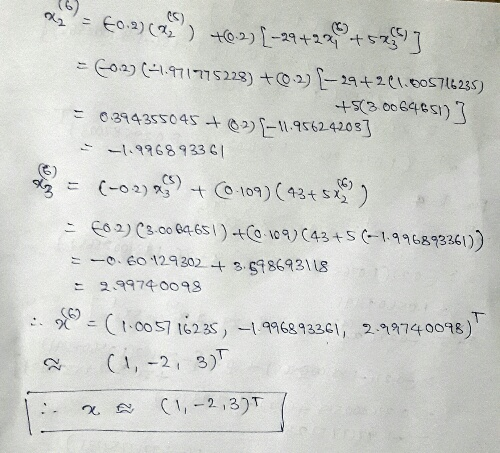 x₂⁽⁶⁾ = (-0.2)(x₂⁽⁵⁾) + (0.2)[-29+2x₁⁽⁶⁾+5x₃⁽⁵⁾]
= (-0.2)(-1.971775228)+(0.2)[-29+2(1.005716235)
+5(3.0064651)]
= 0.394355045 + (0.2)[-11.95624203]
= -1.996893361
x₃⁽⁶⁾ = (-0.2)x₃⁽⁵⁾ + (0.109)(43+5x₂⁽⁶⁾)
= (-0.2)(3.0064651)+(0.109)(43+5(-1.996893361))
= -0.60129302 + 3.598693118
= 2.99740098
∴ x⁽⁶⁾ = (1.005716235, -1.996893361, 2.99740098)ᵀ
≈ (1, -2, 3)ᵀ
∴ x ≈ (1,-2,3)ᵀ